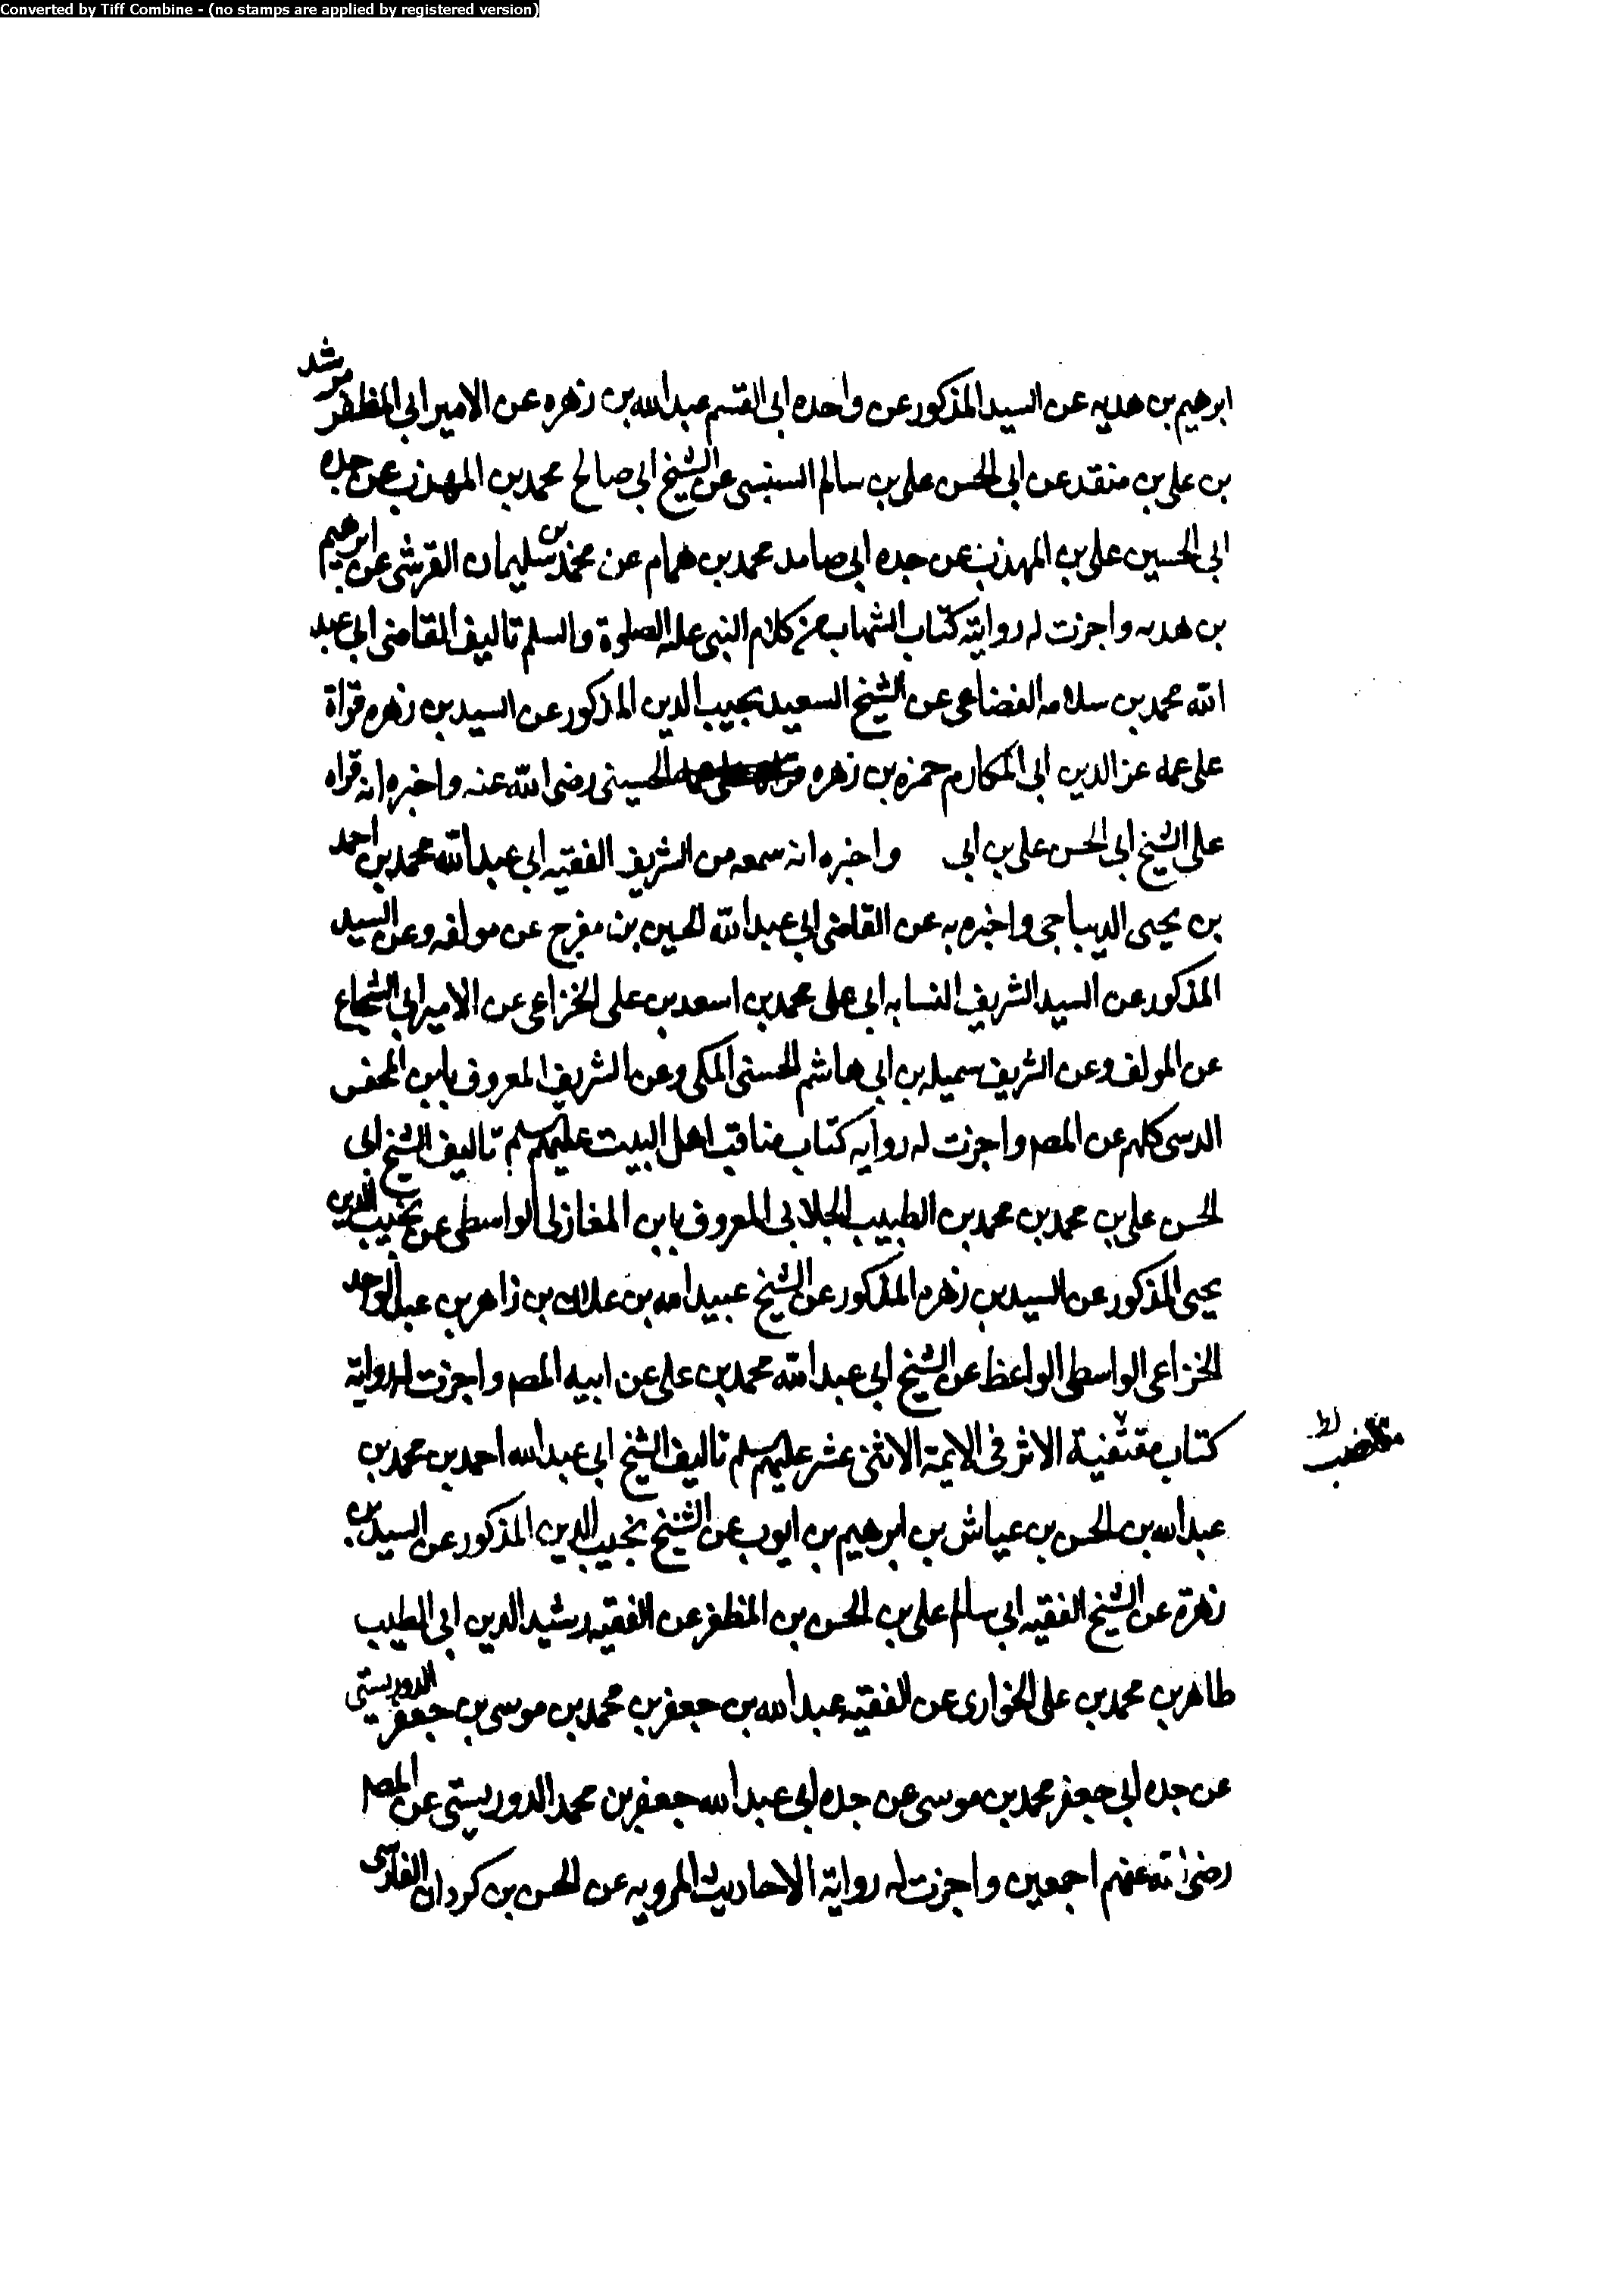 Converted by Tiff Combine - (no stamps are applied by registered version)
ابرهيم بن هديه عن السيد المذكور عن واحده ابى القسم عبد الله بن زهره عن الامير ابى المظفر مرشد
بن على بن منقد عن ابى الحسن على بن سالم السنبسى عن الشيخ ابى صالح محمد بن المهذب عن جده
ابى الحسين على بن المهذب عن جده ابى حامد محمد بن همام عن محمد بن سليمان القرشى عن ابرهيم
بن هدبه واجزت له روايته كتاب الشهاب من كلام النبى عليه الصلوة والسلم تاليف القاضى ابى عبد
الله محمد بن سلامه القضاعى عن الشيخ السعيد نجيب الدين المذكور عن السيد بن زهره قراة
على عمه عز الدين ابى المكارم حمزه بن زهره الحسينى رضى الله عنه واخبره انه قراه
على الشيخ ابى الحسن على بن ابى واخبره انه سمعه من الشريف الفقيه ابى عبد الله محمد بن احمد
بن يحيى الديباجى واخبره به عن القاضى ابى عبد الله الحسين بن مفرج عن مولفه وعن السيد
المذكور عن السيد الشريف النسابه ابى على محمد بن اسعد بن على الخزاعى عن الامير ابى الشجاع
عن المولف وعن الشريف سميله بن ابى هاشم الحسنى المكى وعن الشريف المعروف بابن
كلهم عن المصـ واجزت له روايه كتاب مناقب اهل البيت عليهم سلم تاليف الشيخ ابى
الحسن على بن محمد بن محمد بن الطبيب الجلابى المعروف بابن المغازلى الواسطى عن نجيب الدين
يحيى المذكور عن السيد بن زهره المذكور عن الشيخ عبيد الله بن علان بن زاهر بن عبد الواحد
الخزاعى الواسطى الواعظ عن الشيخ ابى عبد الله محمد بن على عن ابيه المصـ واجزت له رواية
كتاب مقتفية الاثر فى الايمة الاثنى عشر عليهم سلم تاليف الشيخ ابى عبد الله احمد بن محمد بن
مقتضب
عبد الله بن الحسن بن عياش بن ابرهيم بن ايوب عن الشيخ نجيب الدين المذكور عن السيد بن
زهرة عن الشيخ الفقيه ابى سالم على بن الحسن بن المظفر عن الفقيه رشيد الدين ابى الطيب
طاهر بن محمد بن على الخوارى عن الفقيه عبد الله بن جعفر بن محمد بن موسى بن جعفر الدوريستى
عن جده ابى جعفر محمد بن موسى عن جده ابى عبد الله جعفر بن محمد الدوريستى عن المصـ
رضى الله عنهم اجمعين واجزت له رواية الاحاديث المرويه عن الحسن بن كردان الفارسى